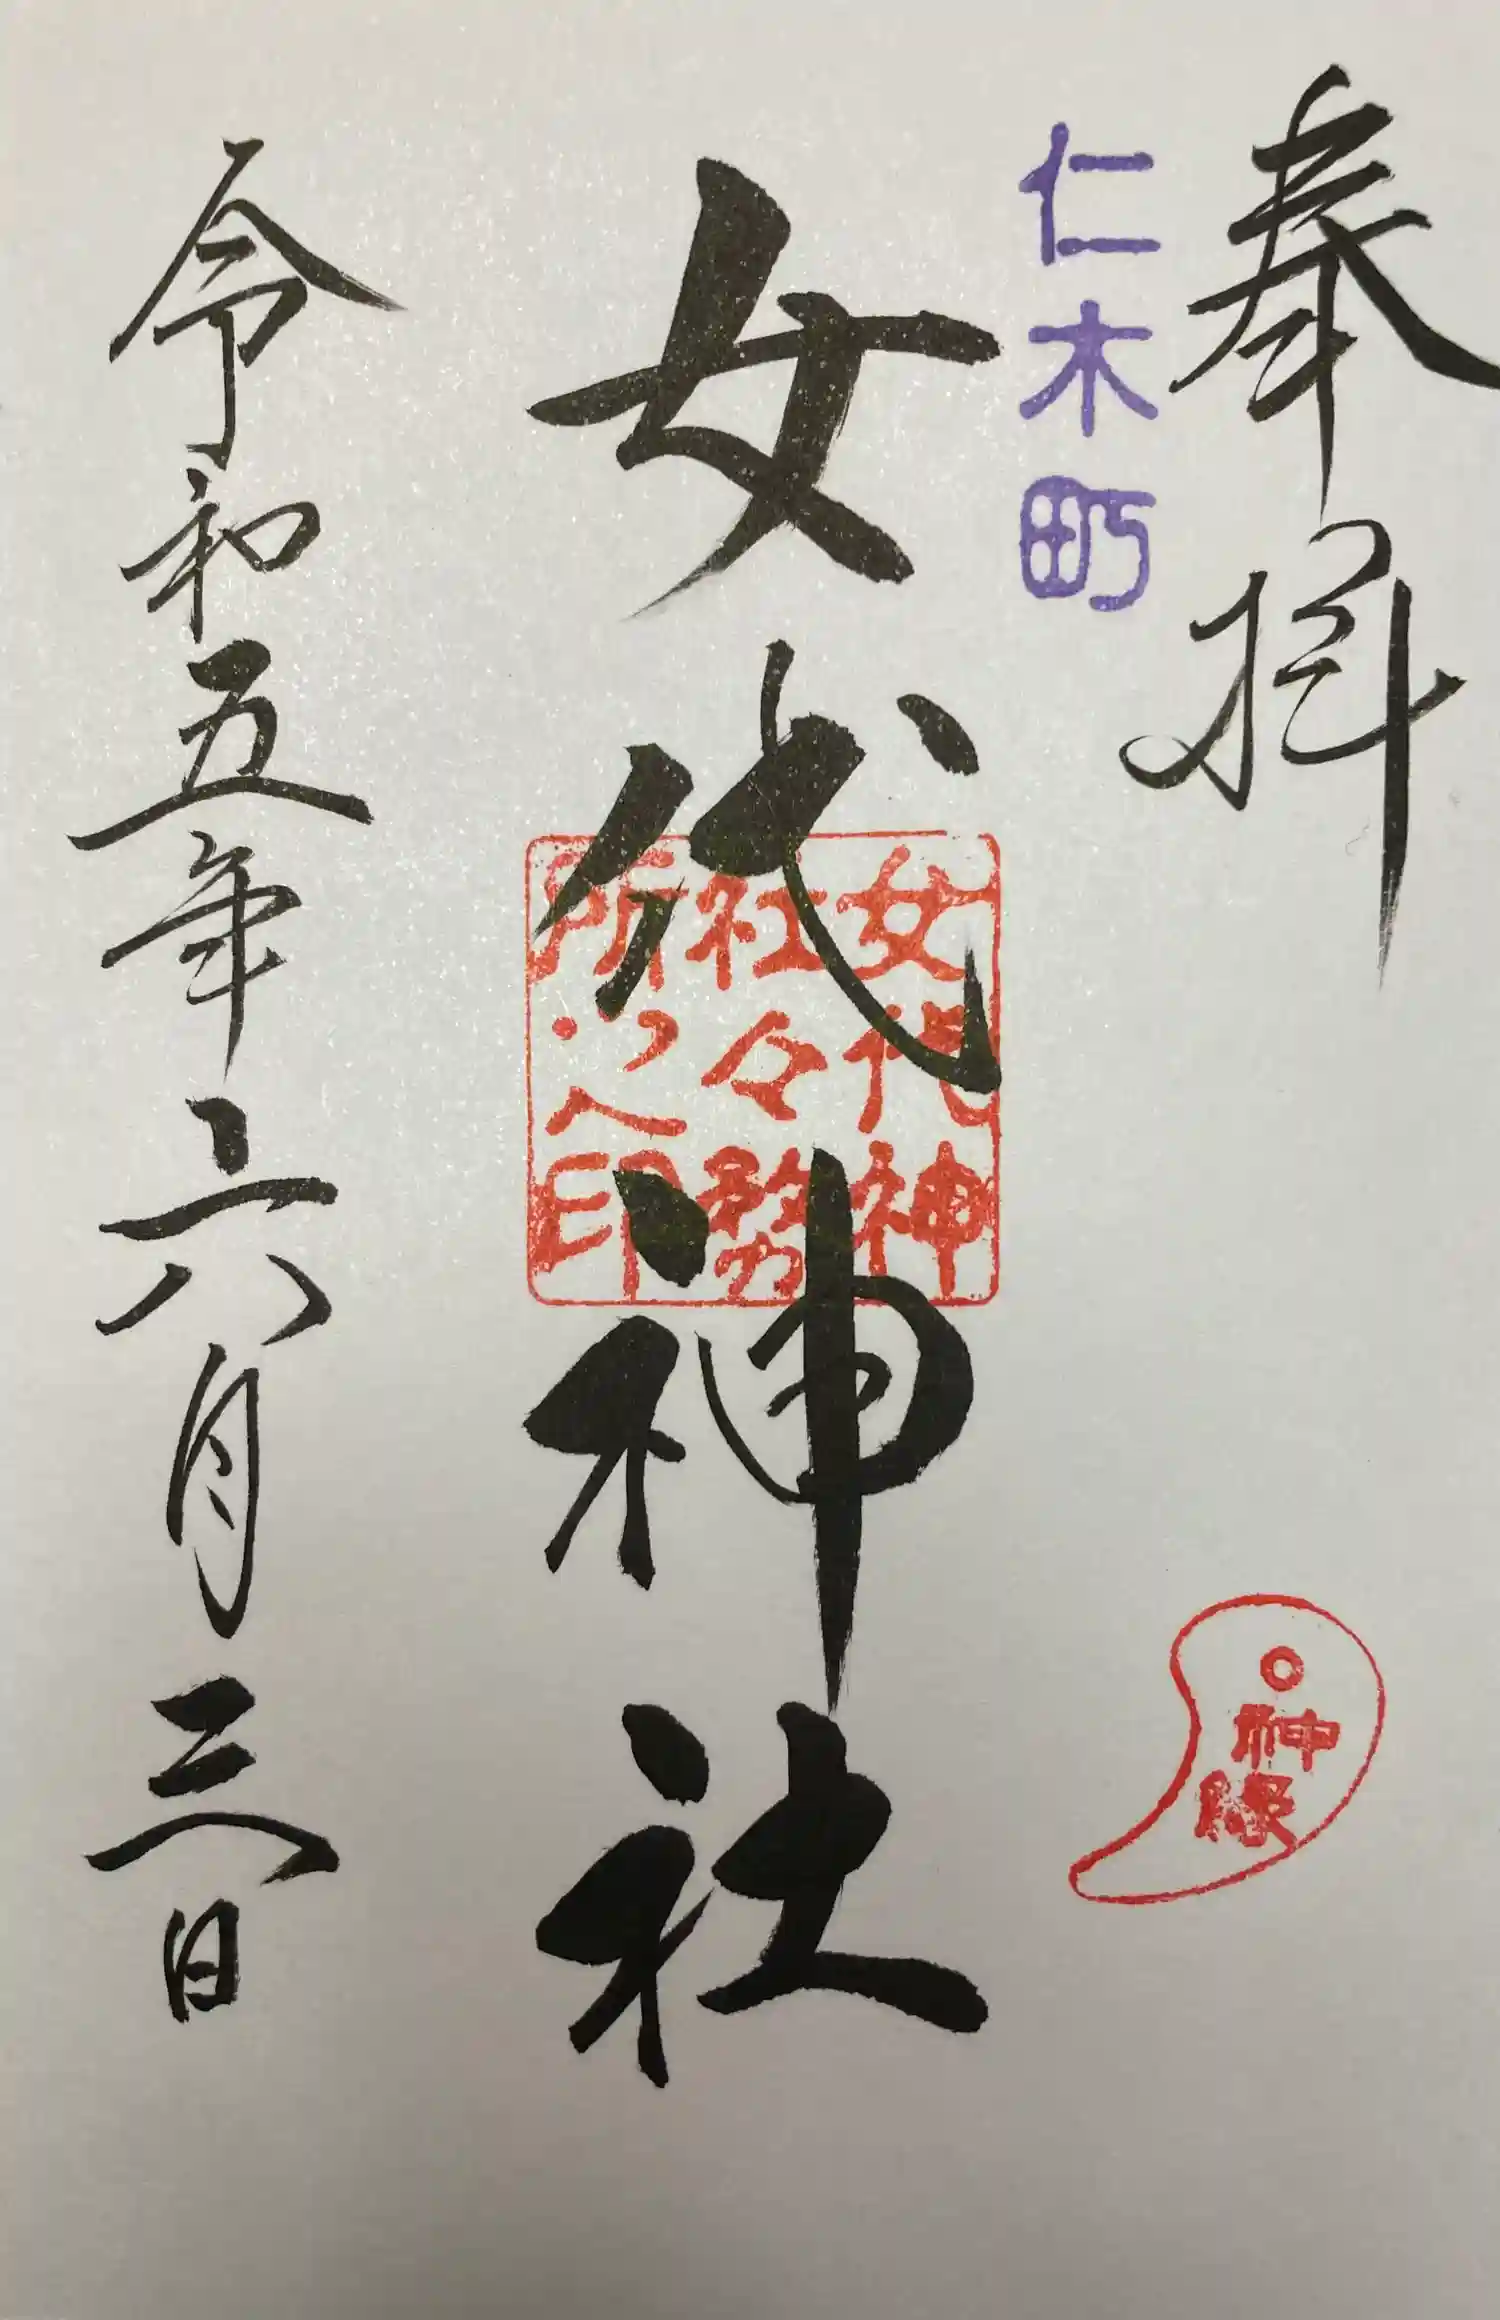 奉拝
仁木町
神
縁
女代神社
女代神
社々務
所之印
令和五年六月三日